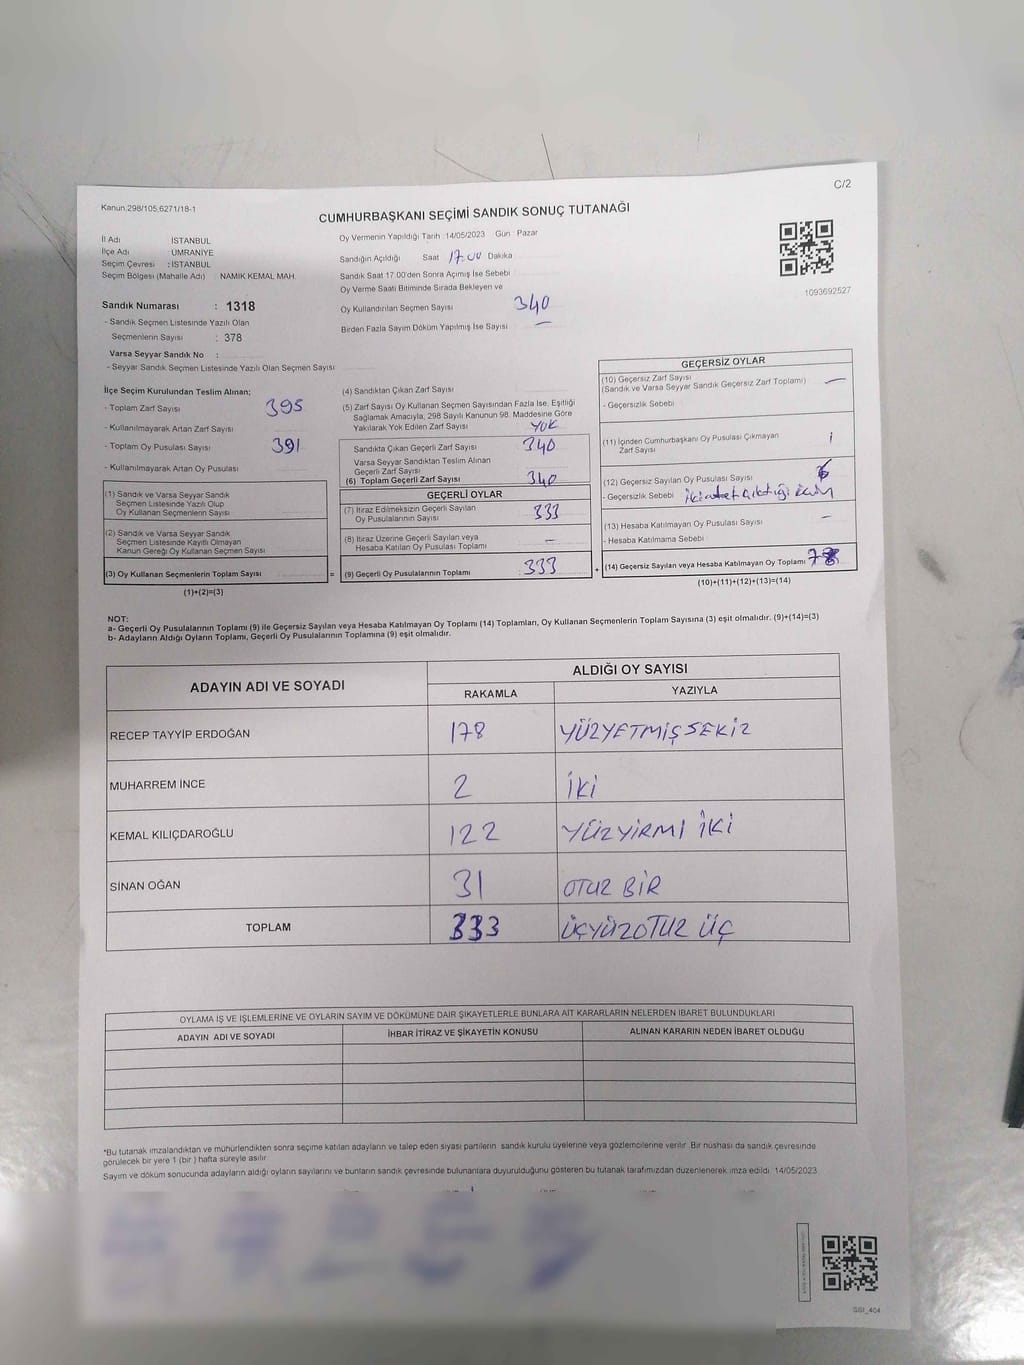 C/2
Kanun.298/105,6271/18-1
CUMHURBAŞKANI SEÇİMİ SANDIK SONUÇ TUTANAĞI
İl Adı İSTANBUL
İlçe Adı ÜMRANİYE
Seçim Çevresi : İSTANBUL
Seçim Bölgesi (Mahalle Adı) NAMIK KEMAL MAH.
Sandık Numarası : 1318
- Sandık Seçmen Listesinde Yazılı Olan
Seçmenlerin Sayısı : 378
Varsa Seyyar Sandık No :
- Seyyar Sandık Seçmen Listesinde Yazılı Olan Seçmen Sayısı
Oy Vermenin Yapıldığı Tarih : 14/05/2023 Gün : Pazar
Sandığın Açıldığı Saat 17.00 Dakika
Sandık Saat 17.00'den Sonra Açımış İse Sebebi
Oy Verme Saati Bitiminde Sırada Bekleyen ve
Oy Kullandırılan Seçmen Sayısı 340
Birden Fazla Sayım Döküm Yapılmış İse Sayısı —
1093692527
İlçe Seçim Kurulundan Teslim Alınan;
- Toplam Zarf Sayısı 395
- Kullanılmayarak Artan Zarf Sayısı
- Toplam Oy Pusulası Sayısı 391
- Kullanılmayarak Artan Oy Pusulası
(1) Sandık ve Varsa Seyyar Sandık
Seçmen Listesinde Yazılı Olup
Oy Kullanan Seçmenlerin Sayısı
(2) Sandık ve Varsa Seyyar Sandık
Seçmen Listesinde Kayıtlı Olmayan
Kanun Gereği Oy Kullanan Seçmen Sayısı
(3) Oy Kullanan Seçmenlerin Toplam Sayısı =
(1)+(2)=(3)
(4) Sandıktan Çıkan Zarf Sayısı
(5) Zarf Sayısı Oy Kullanan Seçmen Sayısından Fazla İse, Eşitliği
Sağlamak Amacıyla, 298 Sayılı Kanunun 98. Maddesine Göre
Yakılarak Yok Edilen Zarf Sayısı YOK
Sandıkta Çıkan Geçerli Zarf Sayısı 340
Varsa Seyyar Sandıktan Teslim Alınan
Geçerli Zarf Sayısı
(6) Toplam Geçerli Zarf Sayısı 340
GEÇERLİ OYLAR
(7) İtiraz Edilmeksizin Geçerli Sayılan
Oy Pusulalarının Sayısı 333
(8) İtiraz Üzerine Geçerli Sayılan veya
Hesaba Katılan Oy Pusulası Toplamı —
(9) Geçerli Oy Pusulalarının Toplamı 333 +
GEÇERSİZ OYLAR
(10) Geçersiz Zarf Sayısı
(Sandık ve Varsa Seyyar Sandık Geçersiz Zarf Toplamı) —
- Geçersizlik Sebebi
(11) İçinden Cumhurbaşkanı Oy Pusulası Çıkmayan
Zarf Sayısı 1
(12) Geçersiz Sayılan Oy Pusulası Sayısı 6
- Geçersizlik Sebebi iki adet çıktığı için
(13) Hesaba Katılmayan Oy Pusulası Sayısı —
- Hesaba Katılmama Sebebi
(14) Geçersiz Sayılan veya Hesaba Katılmayan Oy Toplamı 7
(10)+(11)+(12)+(13)=(14)
NOT:
a- Geçerli Oy Pusulalarının Toplamı (9) ile Geçersiz Sayılan veya Hesaba Katılmayan Oy Toplamı (14) Toplamları, Oy Kullanan Seçmenlerin Toplam Sayısına (3) eşit olmalıdır. (9)+(14)=(3)
b- Adayların Aldığı Oyların Toplamı, Geçerli Oy Pusulalarının Toplamına (9) eşit olmalıdır.
ADAYIN ADI VE SOYADI ALDIĞI OY SAYISI
RAKAMLA YAZIYLA
RECEP TAYYİP ERDOĞAN 178 YÜZYETMİŞSEKİZ
MUHARREM İNCE 2 İKİ
KEMAL KILIÇDAROĞLU 122 YÜZYİRMİ İKİ
SİNAN OĞAN 31 OTUZ BİR
TOPLAM 333 ÜÇYÜZOTUZ ÜÇ
OYLAMA İŞ VE İŞLEMLERİNE VE OYLARIN SAYIM VE DÖKÜMÜNE DAİR ŞİKAYETLERLE BUNLARA AİT KARARLARIN NELERDEN İBARET BULUNDUKLARI
ADAYIN ADI VE SOYADI İHBAR İTİRAZ VE ŞİKAYETİN KONUSU ALINAN KARARIN NEDEN İBARET OLDUĞU
*Bu tutanak imzalandıktan ve mühürlendikten sonra seçime katılan adayların ve talep eden siyasi partilerin sandık kurulu üyelerine veya gözlemcilerine verilir. Bir nüshası da sandık çevresinde
görülecek bir yere 1 (bir ) hafta süreyle asılır.
Sayım ve döküm sonucunda adayların aldığı oyların sayılarını ve bunların sandık çevresinde bulunanlara duyurulduğunu gösteren bu tutanak tarafımızdan düzenlenerek imza edildi. 14/05/2023
SSI_404